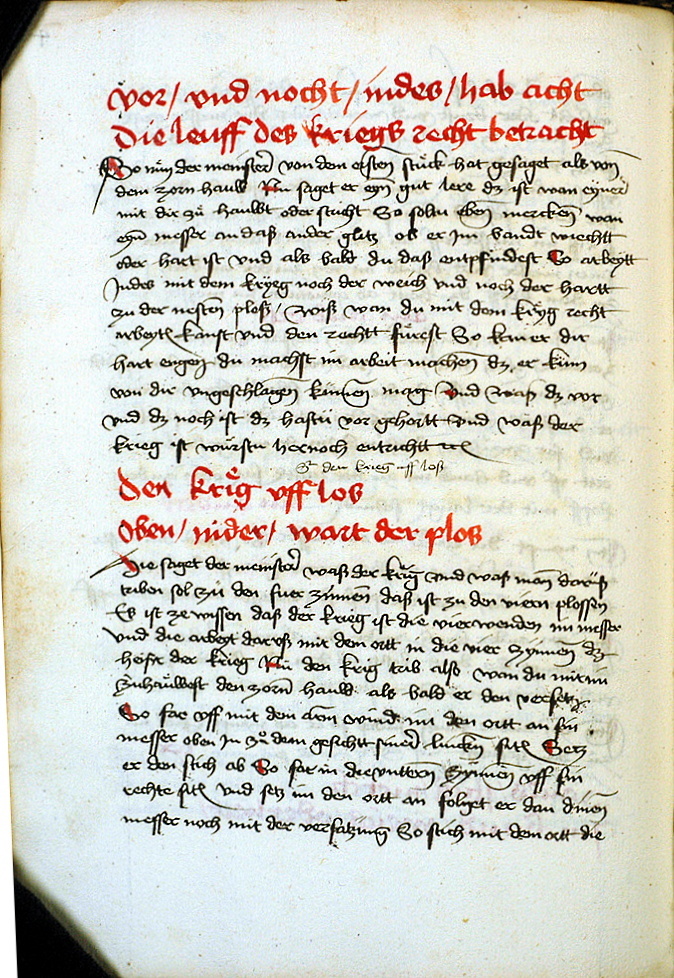 vor / vnd nocht / indes / hab acht
Die leuff des kriegs recht betracht
So nün der meinster von den ersten stuck hat gesaget als von
dem zorn hauw Nu saget er eyn gut lere dz ist wan eyner
mit dir zü hauwt oder sticht So soltu eben mercken wan
eyn messer an daß ander glitz ob er im bandt weichtt
oder hart ist vnd als bald du daß entpfindest So arbeytt
Indes mit dem kryeg noch der weich vnd noch der hartt
zu der nesten ploß / wiß wan du mit dem krÿg recht
arbeyten kanst vnd den rechtt fürest So kan er dir
hart engen du machst im arbeit machen dz er küm
von dir vngeschlagen kümen mag Vnd waß dz vor
vnd dz noch ist dz hastu vor gehortt Vnd waß der
krieg ist würstu hernoch entrichtt etc
den krieg uff loß
Den krig vff los
Oben / nider / wart der plos
Hie saget der meinster waß der krig vnd waß man doruß
triben sol zü den fuer zinnen daß ist zu den viern plossen
Es ist ze wissen daß der krieg ist die vier wenden im messer
vnd die arbeyt doruß mit dem ortt in die vier zynnen dz
heist der krieg Nu den krig trib also wan du mit im
zuhauwest den zorn hauw als bald er den versetz
So far vff mit dem arm wind im den ortt an sin
messer oben In zu dem gesichtt siner lincken siten Setz
er den stich ab So far in die vnttern zynnen vff sin
rechte siten vnd setz im den ortt an folget er dan dinen
messer noch mit der versatzing So stich mit dem ortt die